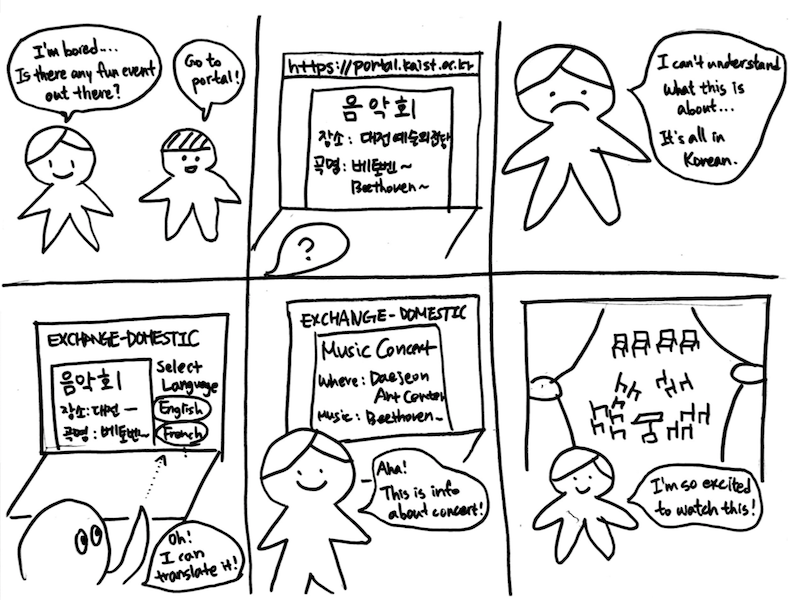 I'm bored....
Is there any fun event
out there?
Go to
portal!
https://portal.kaist.ac.kr
음악회
장소: 대전예술의전당
곡명: 베토벤~
Beethoven~
?
I can't understand
what this is
about...
It's all in
Korean.
EXCHANGE-DOMESTIC
음악회
장소:대전 —
곡명:베토벤~
Select
Language
English
French
Oh!
I can
translate it!
EXCHANGE-DOMESTIC
Music Concert
Where: Daejeon
Art Center
Music: Beethoven~
Aha!
This is info
about concert!
I'm so excited
to watch this!